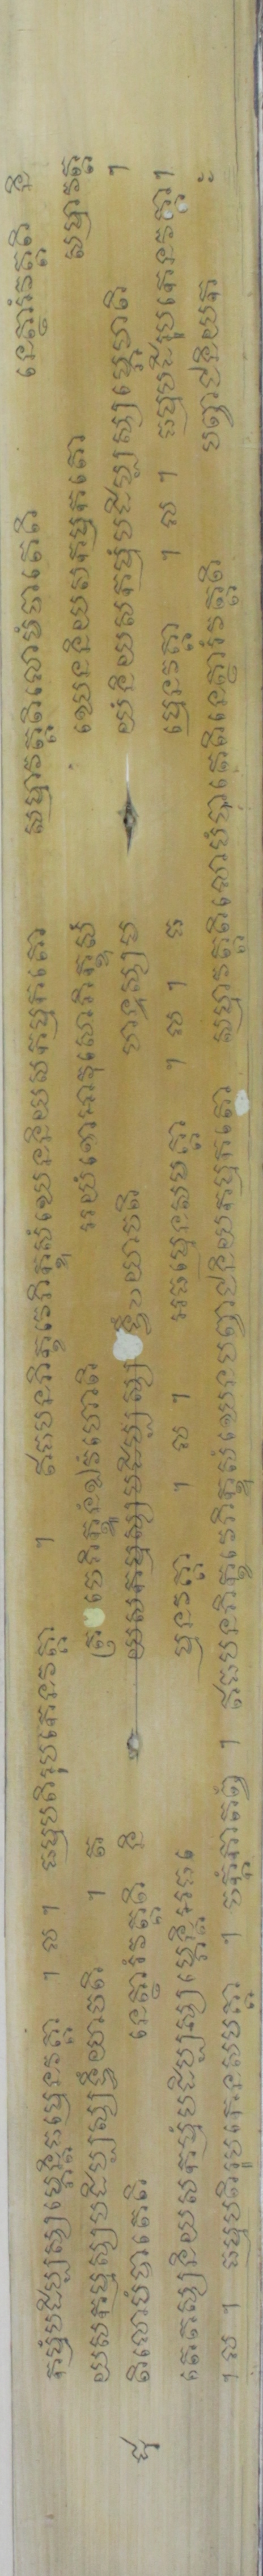 កម្មំបដិប្បស្សម្ភេន្តិធម្មេនវគ្គា ។ ល ។ ធម្មបតិរូបកេនវគ្គា ។ ឥធបនភិក្ខវេភិក្ខុសំឃេននិយសកម្មកតោ សម្មាវត្តតិលោមំបាតេតិ នេត្ថារំវត្តតិ និ
យសកម្មស្សបដិប្បស្សទ្ធឹយាចតិ ។ ត ត្រចេភិក្ខូនំឯវំហោតិ អយំខោអាវុសោភិក្ខុសំ ឃេននិយសកម្មកតោ សម្មាវត្ត
តិលោមំបាតេតិ នេត្ថារំវត្តតិ និ យសកម្មស្សបដិប្បស្ស ទ្ធឹយាចតិ ហន្ទស្សម យំនិយសកម្មំបដិប្បស្សម្ភេមាតិ ។
តេតស្សនិយសកម្មំបដិប្បស្សម្ភេន្តិអធ ម្មេនវគ្គា ។ ល ។ អធម្មេនសមគ្គា ។ ល ។ ធ ម្មេនវគ្គា ។ ល ។ ធម្មបដិរូបកេនវគ្គា ។
។ ល ។ ធម្មបតិរូបកេនសមគ្គា ។ ចក្កំកាតព្វំ ។ ឥធបនភិក្ខវេភិក្ខុសំឃេនបព្វាជនិយកម្មកតោ សម្មាវត្តតិលោមំបាតេតិនេត្ថារំវត្តតិ បព្វាជនិយក